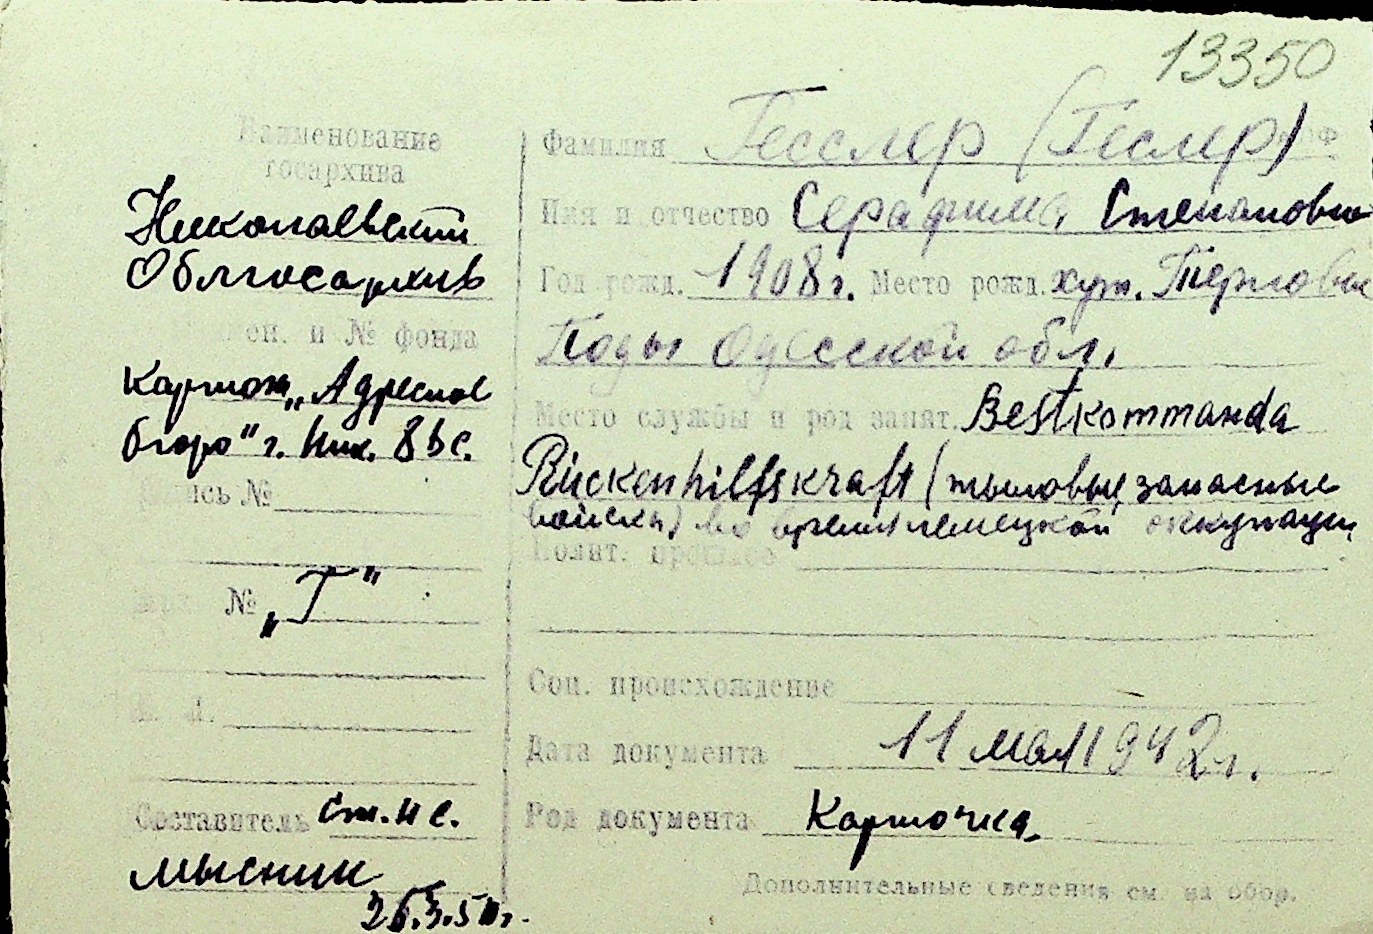 13350
Наименование
госархива
Николаевский
Облгосархив
ен. и № фонда
картот. „Адресное
бюро" г. Ник. 8 вс.
ись №
№ „Г"
Л.
Составитель Ст. н с.
Мысник
Фамилия Гесслер (Геслер)
Имя и отчество Серафима Степановна
Год рожд. 1908 г. Место рожд. хут. Терновые
Поды Одесской обл.
Место службы и род занят. Bestkommanda
Rückenhilfskraft (тыловые запасные
войска) во время немецкой оккупации
Полит. прошлое
Соц. происхождение
Дата документа 11 мая 1942 г.
Род документа Карточка.
Дополнительные сведения см. на обор.